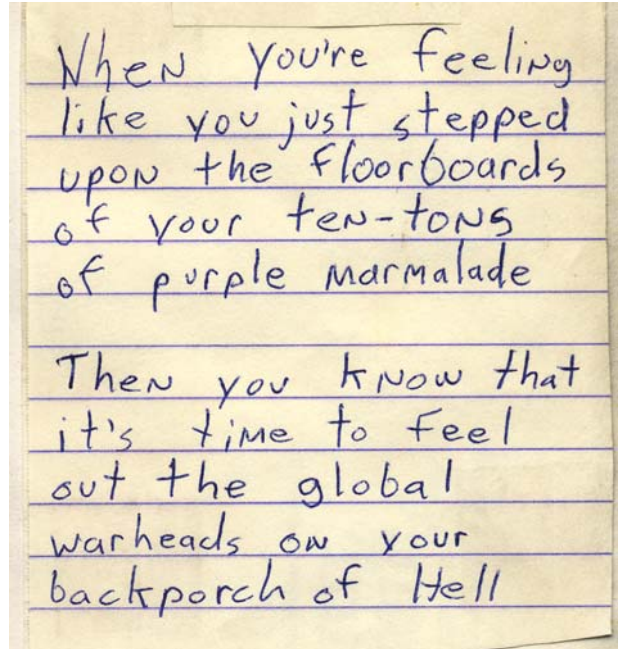 When you're feeling
like you just stepped
upon the floorboards
of your ten-tons
of purple marmalade
Then you know that
it's time to feel
out the global
warheads on your
backporch of Hell